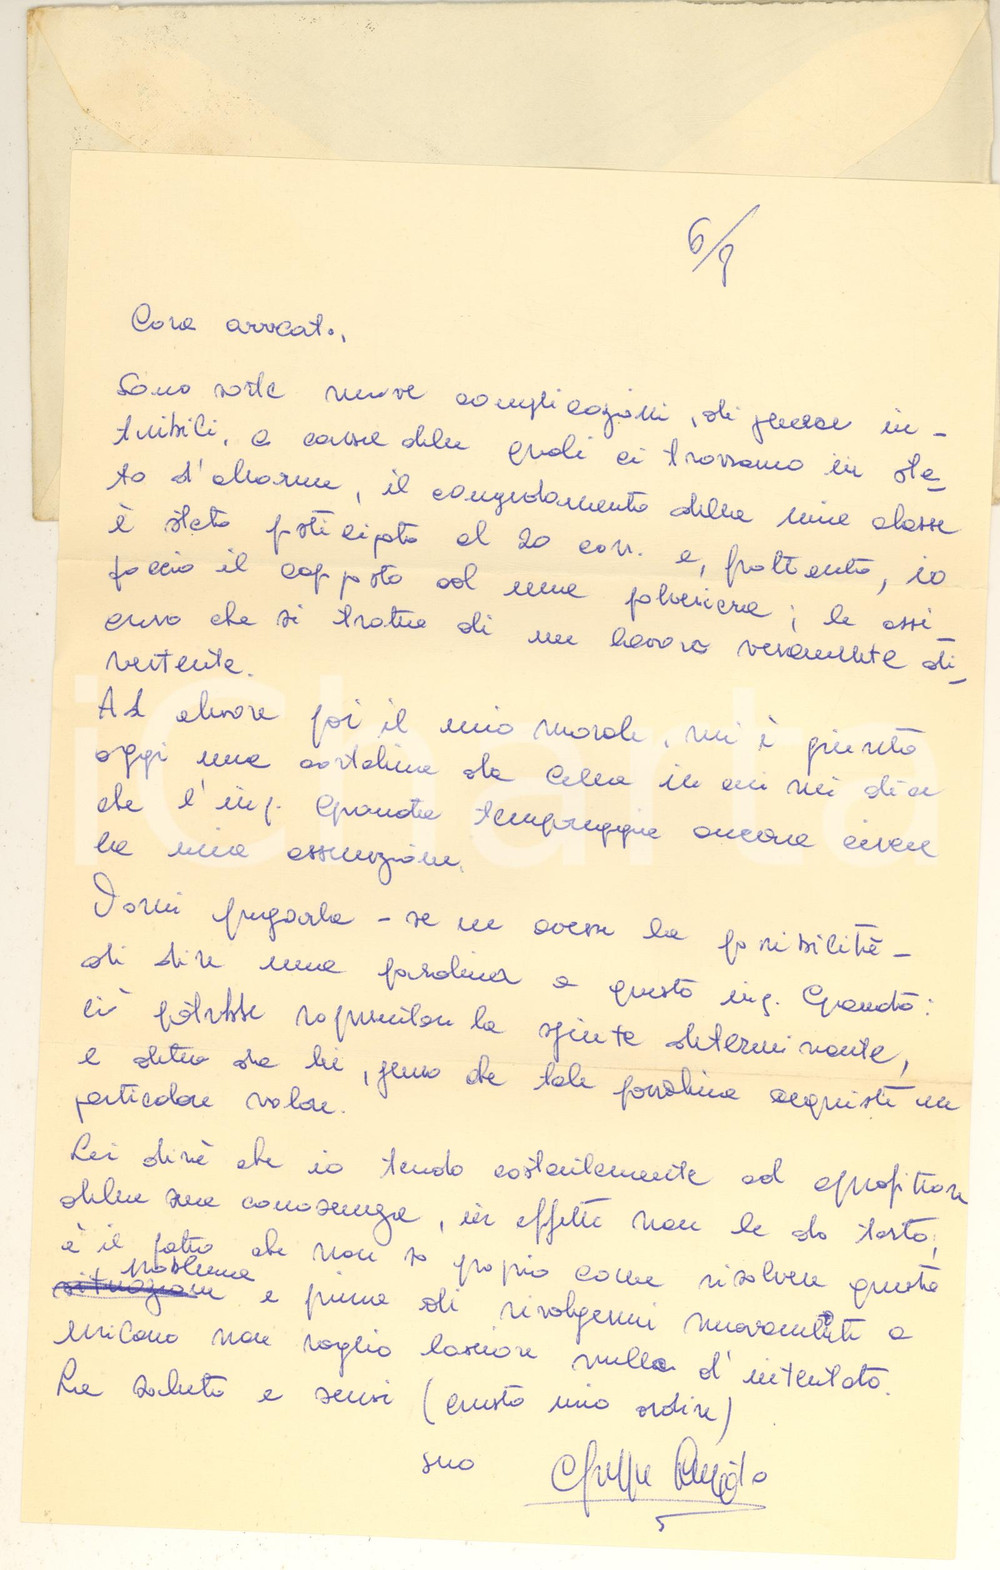 6/8
Caro avvocato,
Sono sorte nuove complicazioni, di genere in-
tuibili, a causa delle quali ci troviamo in sta-
to d'allarme, il congedamento della mia classe
è stato posticipato al 20 corr. e, frattanto, io
faccio il capo posto ad una polveriera; le assi
curo che si tratta di un lavoro veramente di-
vertente.
Ad alzare poi il mio morale, mi è giunta
oggi una cartolina da in cui mi dice
che l'ing. tempreggia ancora circa
la mia assunzione.
Vorrei pregarla - se ne avesse la possibilità -
di dire una parolina a questo ing.
ciò potrebbe rappresentare la spinta determinante,
e detta da lei, penso che tale parolina acquisti un
particolare valore.
Lei dirà che io tendo costantemente ad approfittare
della sua conoscenza, in effetti non le do torto;
è il fatto che non so proprio come risolvere questo
problema
situazione e prima di rivolgermi nuovamente a
non voglio lasciare nulla d'intentato.
La saluto e scusi (questo mio ardire)
suo
iCharta